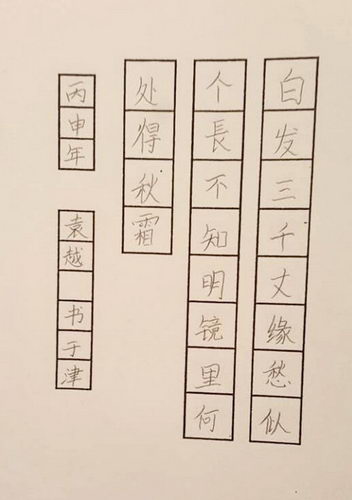 白发三千丈缘愁似
个長不知明镜里何
处得秋霜
丙申年
袁越 书于津